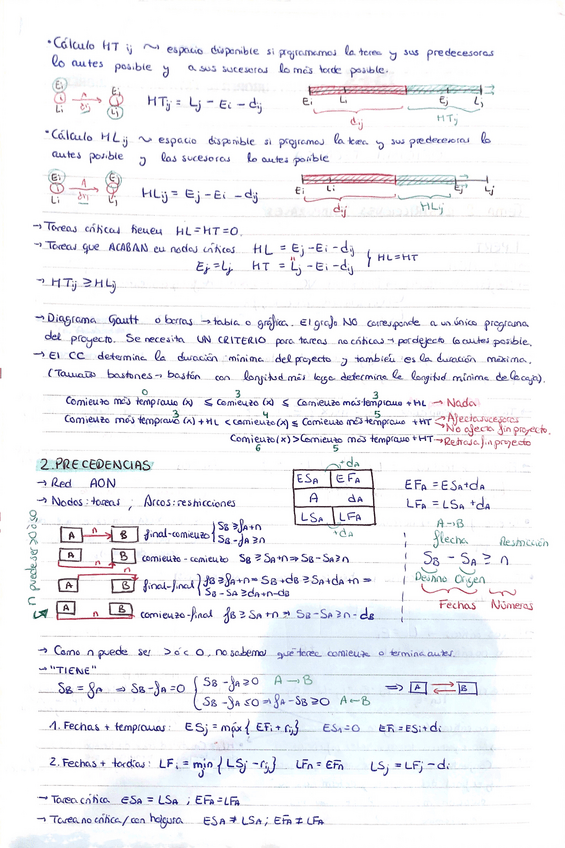 • Cálculo HT ij ~> espacio disponible si programamos la tarea y sus predecesoras
lo antes posible y a sus sucesoras lo más tarde posible.
Ei A Ej
i dij j
Li Lj
HTij = Lj - Ei - dij
Ei Li Ej Lj
dij HTij
• Cálculo HLij ~> espacio disponible si programo la tarea y sus predecesoras lo
antes posible y las sucesoras lo antes posible
Ei A Ej
Li Lj
HLij = Ej - Ei - dij
Ei Li Ej Lj
dij HLij
→ Tareas críticas tienen HL = HT = 0.
→ Tareas que ACABAN en nodos críticos HL = Ej - Ei - dij
Ej = Lj HT = Lj - Ei - dij } HL = HT
→ HTij ≥ HLij
→ Diagrama Gantt o barras → tabla o gráfica. El grafo NO corresponde a un único programa
del proyecto. Se necesita UN CRITERIO para tareas no críticas → por defecto lo antes posible.
→ El CC determina la duración mínima del proyecto y también es la duración máxima.
(Tamaño bastones → bastón con longitud más larga determina la longitud mínima de la caja).
0 3 3
Comienzo más temprano ≤ Comienzo (x) ≤ Comienzo más temprano + HL → Nada
3 4 5
Comienzo más temprano (x) + HL < Comienzo (x) ≤ Comienzo más temprano + HT → Afecta sucesoras
→ No afecta fin proyecto.
Comienzo (x) > Comienzo más temprano + HT → Retrasa fin proyecto
6 5
2. PRECEDENCIAS
→ Red AON
→ Nodos: tareas ; Arcos: restricciones
+dA
ESA EFA
A dA
LSA LFA
-dA
EFA = ESA + dA
LFA = LSA + dA
n puede ser >0 ó ≤0
A n B final-comienzo { SB ≥ fA + n
SB - fA ≥ n
A n B comienzo-comienzo SB ≥ SA + n ⇒ SB - SA ≥ n
A B final-final { fB ≥ fA + n = SB + dB ≥ SA + dA + n ⇒
SB - SA ≥ dA + n - dB
A n B comienzo-final fB ≥ SA + n ⇒ SB - SA ≥ n - dB
A → B
flecha Restricción
SB - SA ≥ n
Destino Origen
Fechas Números
→ Como n puede ser > ó < 0, no sabemos qué tarea comienza o termina antes.
→ "TIENE"
SB = fA ⇒ SB - fA = 0 { SB - fA ≥ 0 A → B
SB - fA ≤ 0 ⇒ fA - SB ≥ 0 A ← B
⇒ A B
1. Fechas + tempranas: ESj = máx { EFi + rij } ES1 = 0 EFi = ESi + di
2. Fechas + tardías: LFi = mín { LSj - rij } LFn = EFn LSj = LFj - di
j
→ Tarea crítica ESA = LSA ; EFA = LFA
→ Tarea no crítica / con holgura ESA ≠ LSA ; EFA ≠ LFA